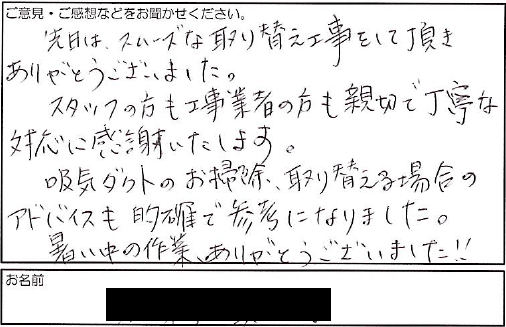 ご意見・ご感想などをお聞かせください。
先日は、スムーズな取り替え工事をして頂き
ありがとうございました。
スタッフの方も工事業者の方も親切で丁寧な
対応に感謝いたします。
吸気ダクトのお掃除、取り替える場合の
アドバイスも的確で参考になりました。
暑い中の作業、ありがとうございました!!
お名前